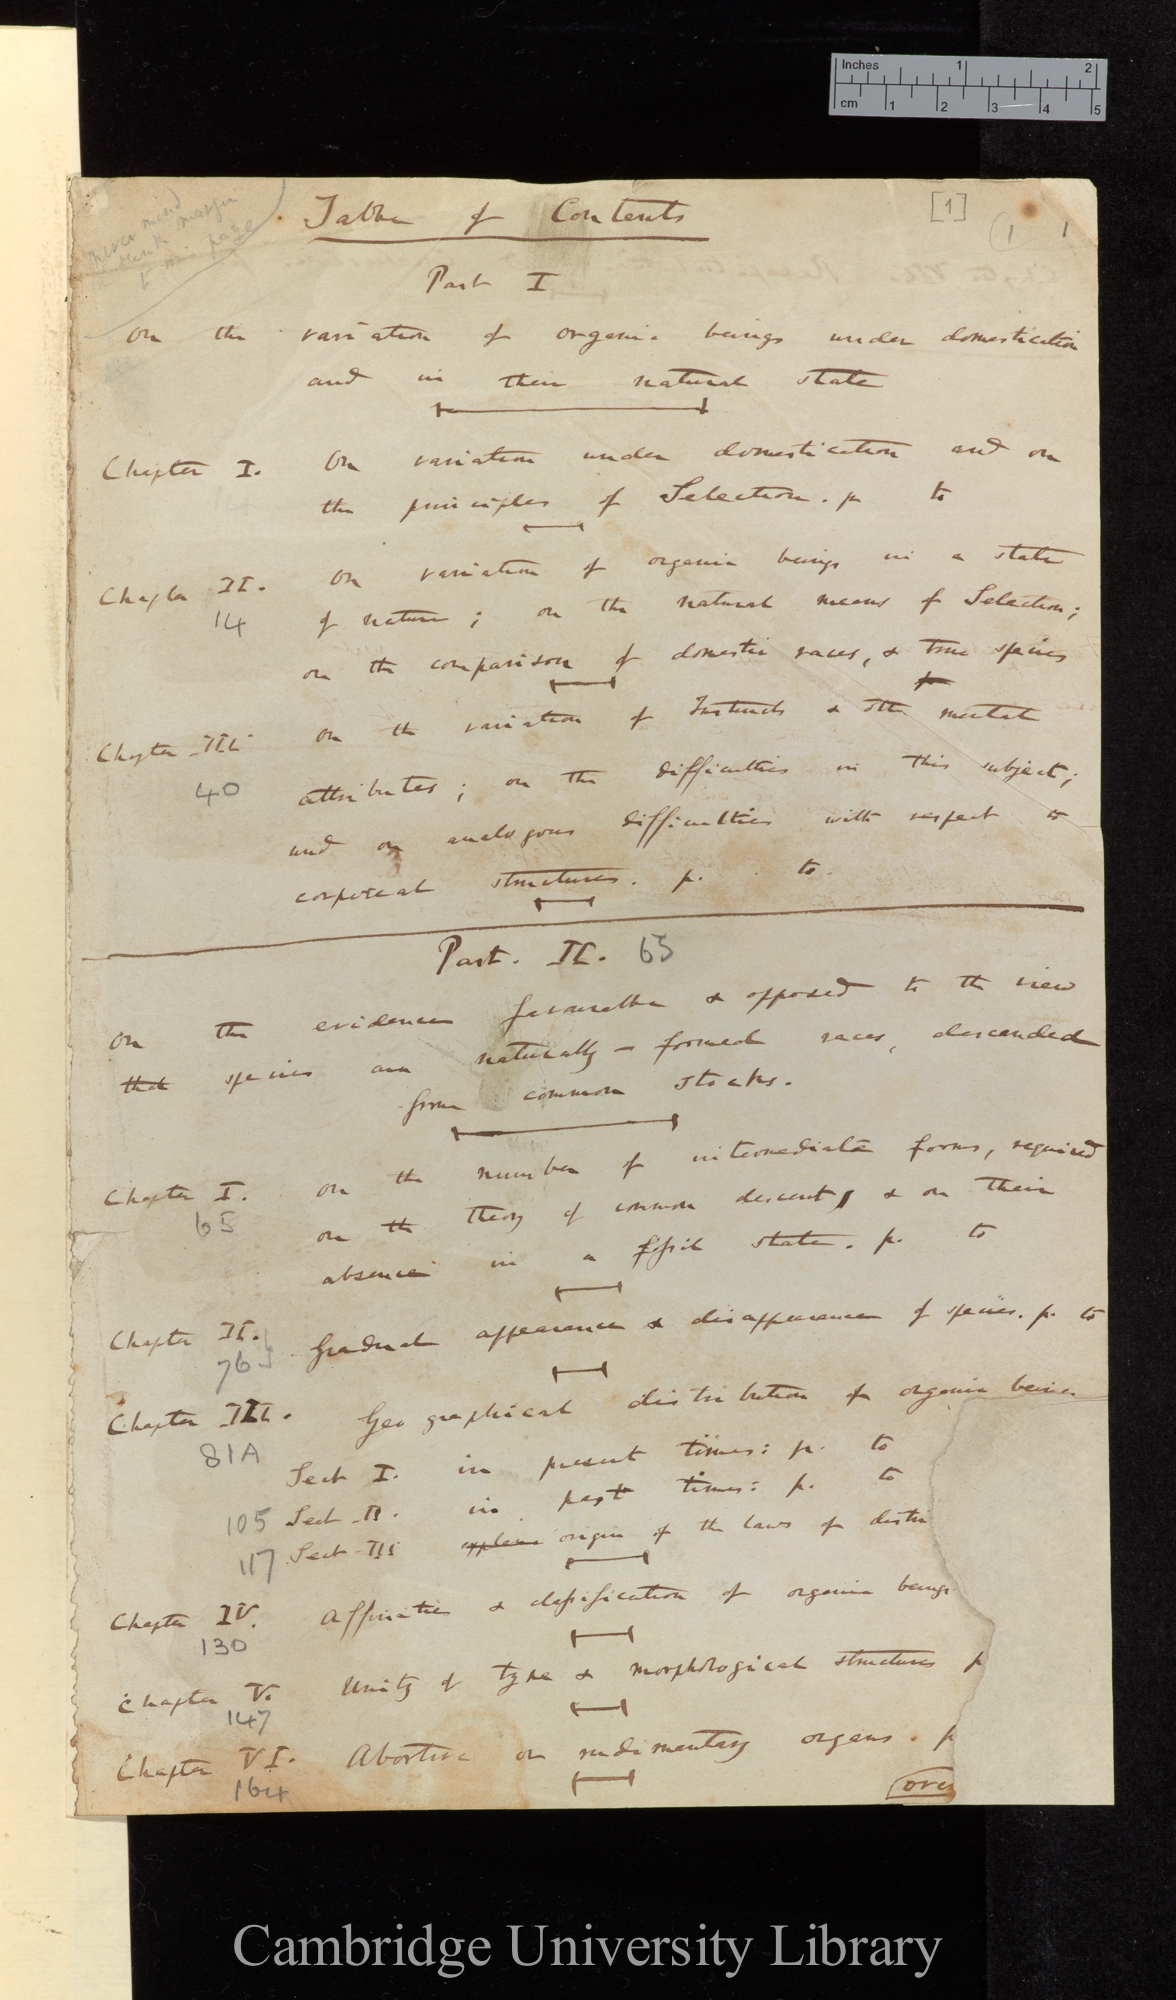 Inches 1 2
cm 1 2 3 4 5
never mind
this margin
to this page
[1]
1 1
Table of Contents
Part I
On the variation of organic beings under domestication
and in their natural state
Chapter I. On variation under domestication and on
the principles of Selection. p to
Chapter II. On variation of organic beings in a state
14 of nature; on the natural means of Selection;
on the comparison of domestic races, & true species
Chapter III on the variation of Instincts & other mental
40 attributes; on the difficulties in this subject;
and on analogous difficulties with respect to
corporeal structures. p. to.
Part. II. 65
On the evidence favourable & opposed to the view
that species are naturally-formed races, descended
from common stocks.
Chapter I. on the number of intermediate forms, required
65 on the theory of common descent, & on their
absence in a fossil state. p. to
Chapter II. Gradual appearance & disappearance of species. p. to
76
Chapter III. Geographical distribution of organic beings
81A Sect I. in present times: p. to
105 Sect II. in past times: p. to
117 Sect III origin of the laws of distri
Chapter IV. Affinities & classification of organic beings
130
Chapter V. Unity of type & morphological structures p
147
Chapter VI. Abortive or rudimentary organs. p
164
over
Cambridge University Library